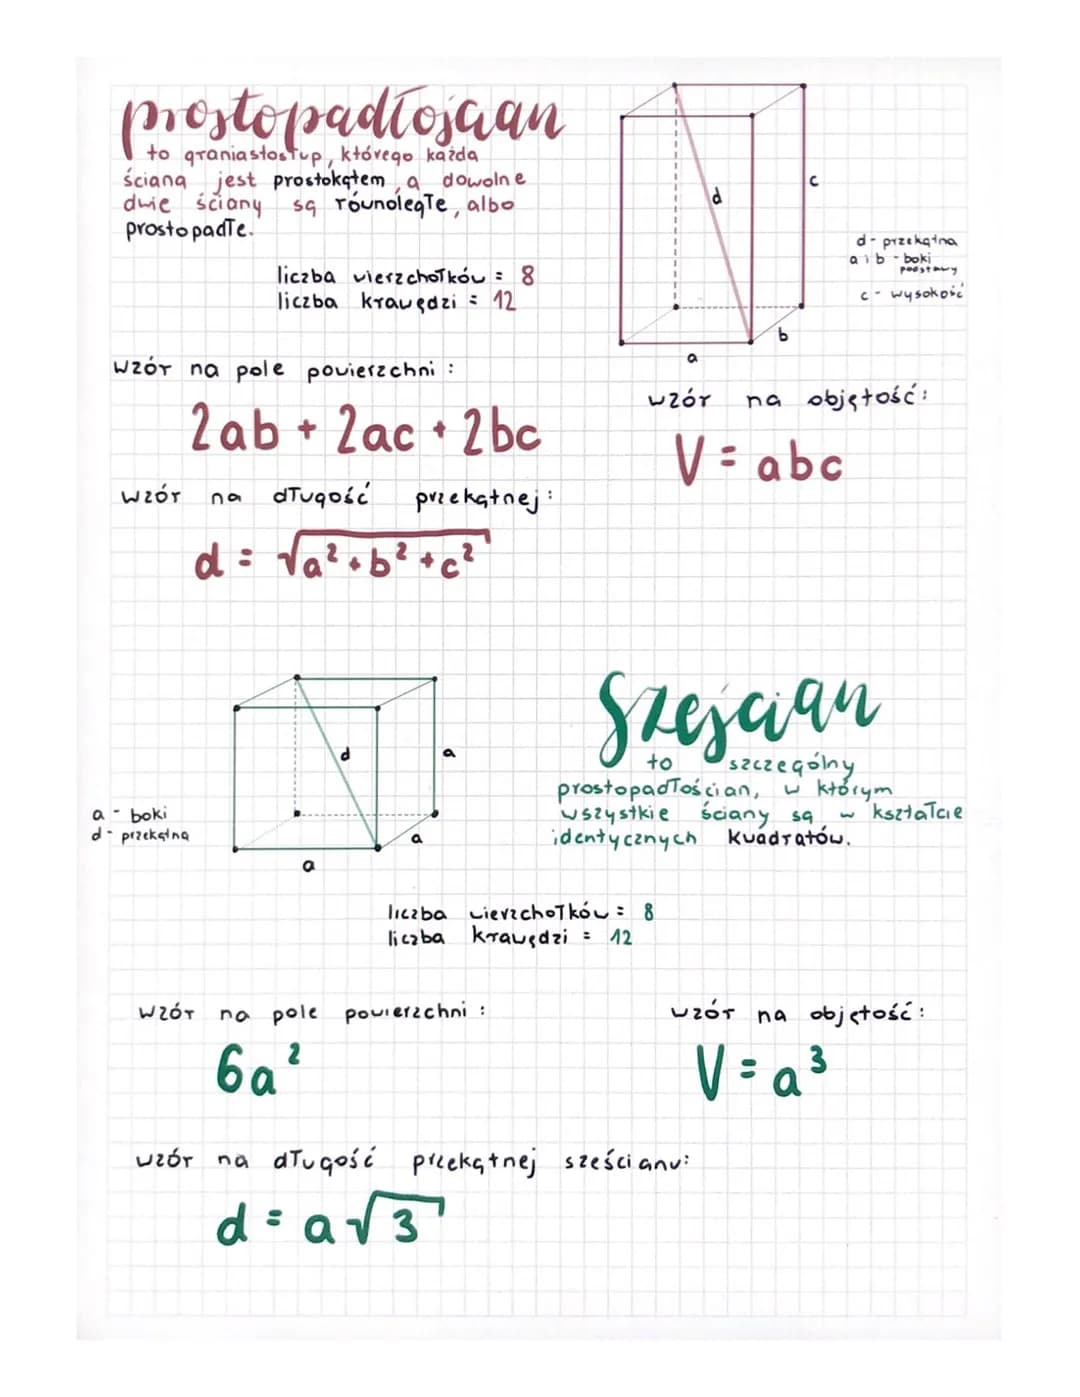 prostopadłościan
to graniastosłup, którego każda
ściana jest prostokątem, a dowolne
dwie ściany są równoległe, albo
prostopadłe.
liczba wierzchołków = 8
liczba krawędzi = 12
d
c
a
b
d - przekątna
a i b - boki
podstawy
c - wysokość
wzór na pole powierzchni:
2ab + 2ac + 2bc
wzór na objętość:
V = abc
wzór na długość przekątnej:
d = √a² + b² + c²
d
a
a
a
a - boki
d - przekątna
Sześcian
to szczególny
prostopadłościan, w którym
wszystkie ściany są w kształcie
identycznych kwadratów.
liczba wierzchołków = 8
liczba krawędzi = 12
wzór na pole powierzchni:
6a²
wzór na objętość:
V = a³
wzór na długość przekątnej sześcianu:
d = a√3